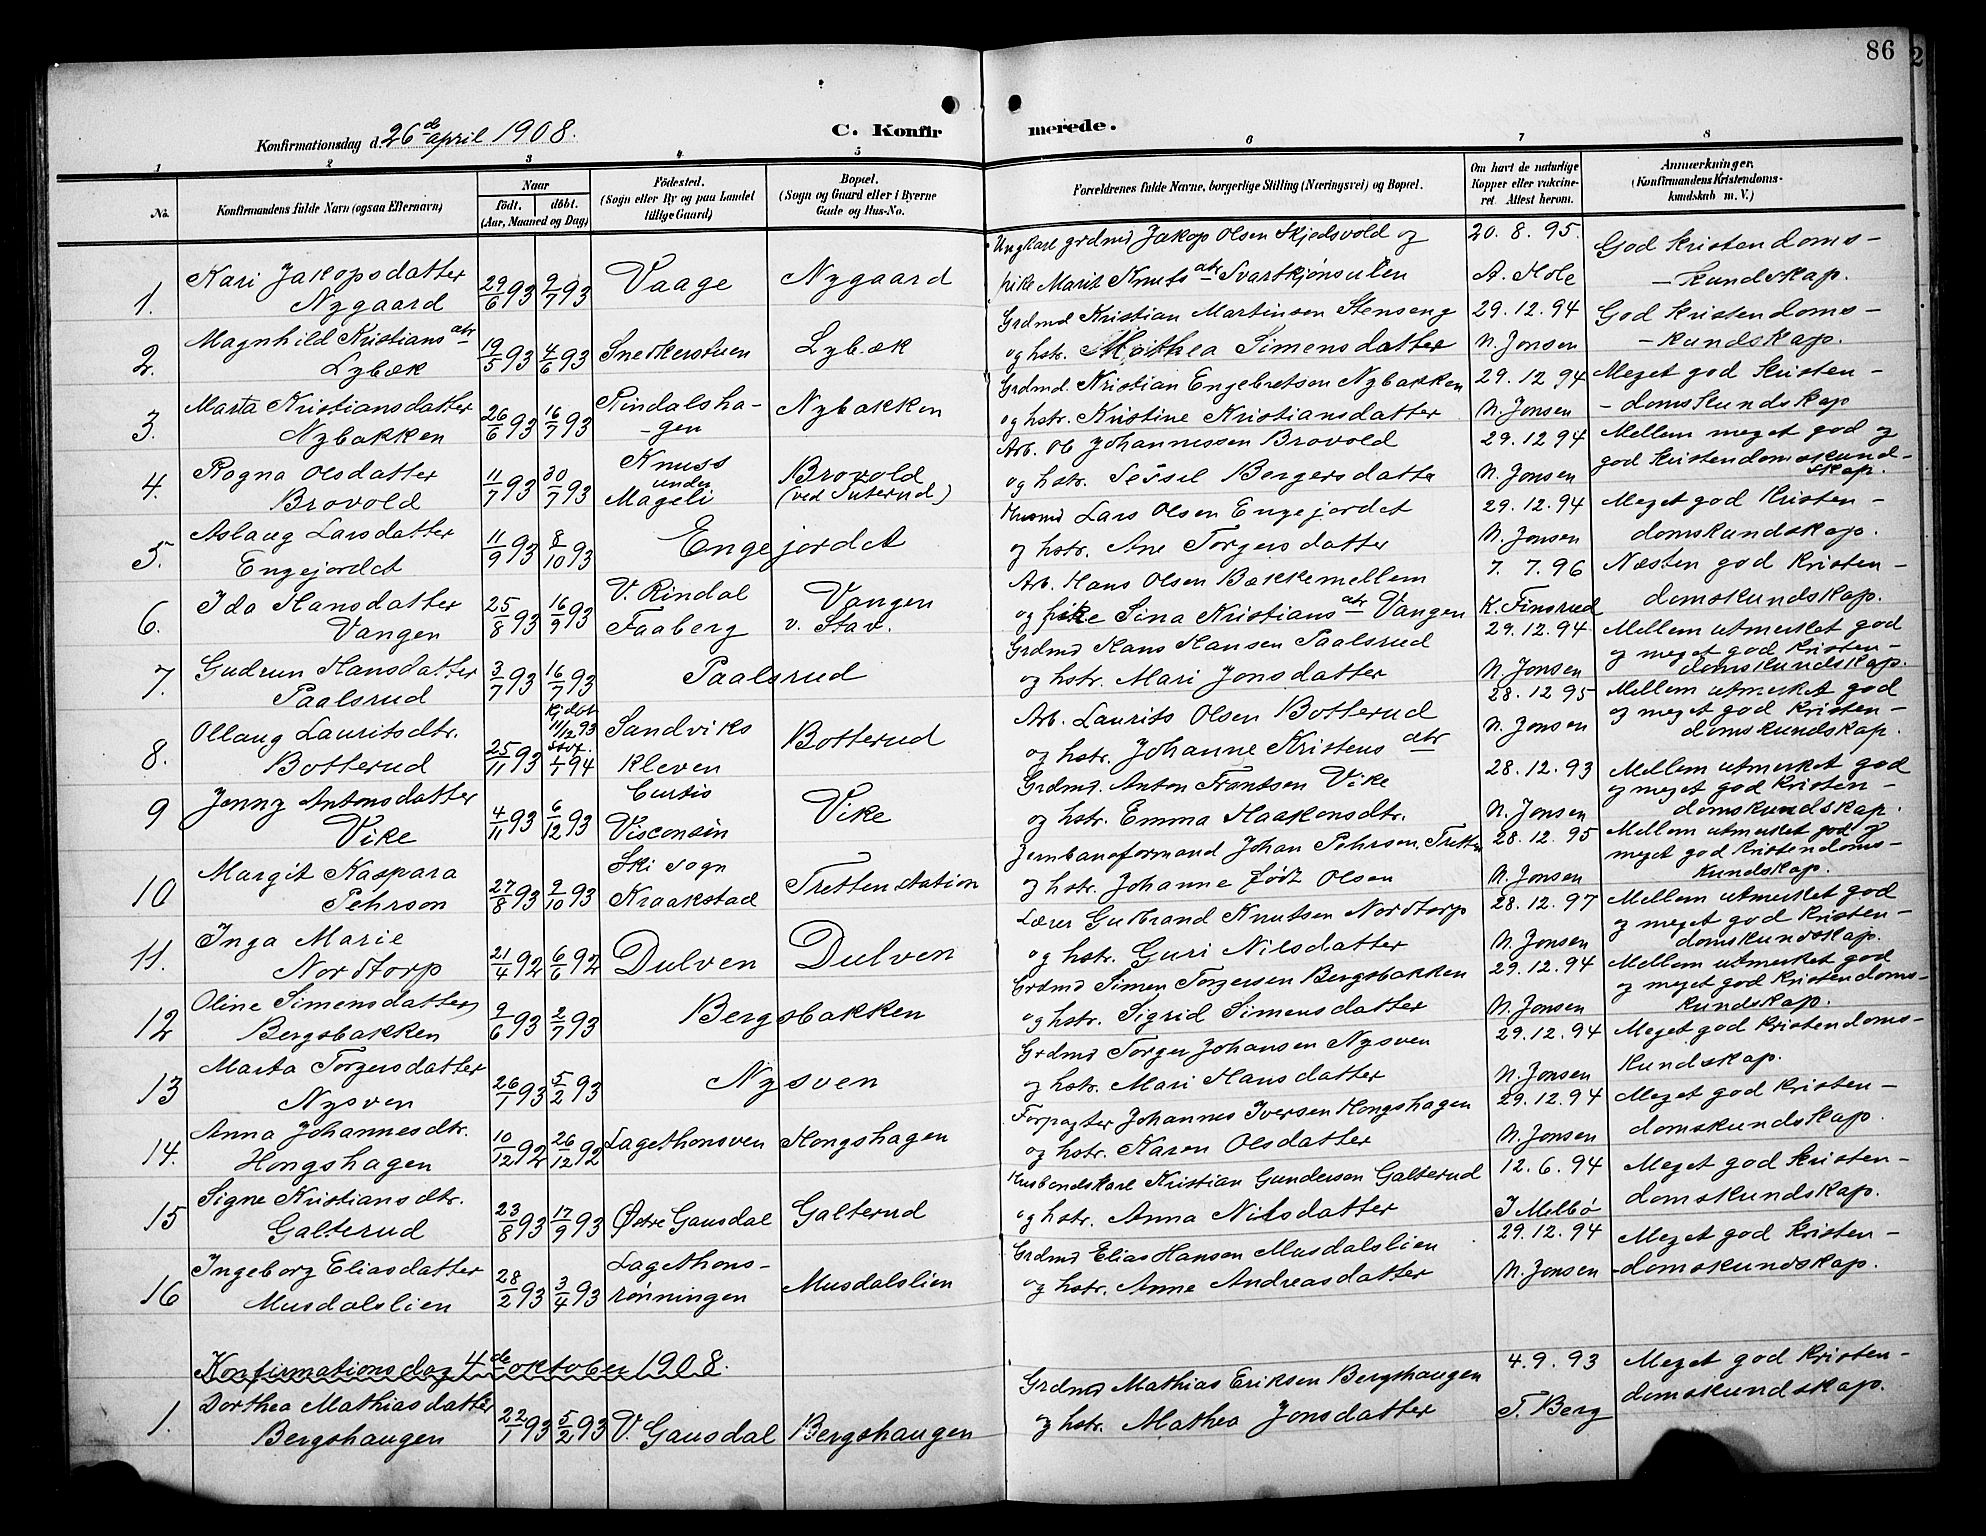 86
Konfirmationsdag d. 26de april 1908.
C. Konfirmerede.
1 2 3 4 5 6 7 8
No. Konfirmandens fulde Navn (ogsaa Efternavn) Naar født. døbt. (Aar, Maaned og Dag) Fødested. (Sogn eller By og paa Landet tillige Gaard) Bopæl. (Sogn og Gaard eller i Byerne Gade og Hus-No. Forældrenes fulde Navne, borgerlige Stilling (Næringsvei) og Bopæl. Om havt de naturlige Kopper eller vakcineret. Attest herom. Anmærkninger. (Konfirmandens Kristendomskundskab m. V.)
Ungkarl grdmd Jakop Olsen Skjedsvold og 20. 8. 95. God kristendoms-
1. Kari Jakopsdatter 29/6 93 9/7 93 Vaage Nygaard pike Marit Knutsdtr Svartkjønsulen A. Hole -kundskap.
Nygaard
Grdmd Kristian Martinsen Stenseng 29.12.94 God kristendoms-
2. Magnhild Kristiansdtr 19/5 93 4/6 93 Snekkerstuen Lybæk og hstr. Mathea Simensdatter N. Jonsen -kundskap.
Lybæk
Grdmd Kristian Engebretsen Nybakken 29.12 94 Meget god kristen-
3. Marta Kristiansdatter 26/6 93 16/7 93 Rindalsha- Nybakken og hstr. Kristine Kristiansdatter N. Jonsen -domskundskap
Nybakken -gen
Arb. Ole Johannessen Brovold 29.12 94 Mellem meget god og
4. Ragna Olsdatter 11/7 93 30/7 93 Knuss under Mageli Brovold (ved Suterud) og hstr. Sessil Bergersdatter N. Jonsen god kristendomskundskap.
Brovold
Husmd Lars Olsen Engejordet 29.12.94 Meget god kristen-
5. Aslaug Larsdatter 11/9 93 8/10 93 Engejordet og hstr. Ane Torgersdatter N. Jonsen domskundskap.
Engejordet
Arb. Hans Olsen Bækkemellem 7. 7. 96 Næsten god kristen-
6. Ida Hansdatter 25/8 93 16/9 93 V. Rindal Faaberg Vangen v. Stav. og pike Sina Kristiansdtr Vangen K. Finsrud domskundskap.
Vangen
Grdmd Hans Hansen Paalsrud 29.12.94 Mellem utmerket god
7. Gudrun Hansdatter 3/7 93 16/7 93 Paalsrud og hstr. Mari Jonsdatter N. Jonsen og meget god kristendomskundskap.
Paalsrud
Arb. Laurits Olsen Botterud 28.12 95 Mellem utmerket god
8. Ollaug Lauritsdtr. 25/11 93 hjdbt 11/12 93 stdf. 1/1 94 Sandviks kleven Botterud og hstr. Johanne Kristensdtr N. Jonsen og meget god kristendomskundskap.
Botterud
Grdmd. Anton Frantsen Vike 28.12.93 Mellem utmerket god
9 Jenny Antonsdatter 4/11 93 6/12 93 Curtis Visconsin Vike og hstr. Emma Haakonsdtr. N. Jonsen og meget god kristendomskundskap.
Vike
Jernbaneformand Johan Pehrson, Tretten 28.12.95 Mellem utmerket god og
10 Margit Kaspara 27/8 93 2/10 93 Ski sogn Kraakstad Tretten station og hstr. Johanne født Olsen N. Jonsen meget god kristendomskundskap.
Pehrson
Lærer Gudbrand Knutsen Nordtorp 28.12.97 Mellem utmerket god
11. Inga Marie 21/4 92 6/6 92 Dulven Dulven og hstr. Guri Nilsdatter N. Jonsen og meget god kristendomskundskap.
Nordtorp
Grdmd Simen Torgersen Bergsbakken 29.12.94 Mellem utmerket god
12 Oline Simensdatter 9/6 93 2/7 93 Bergsbakken og hstr. Sigrid Simensdatter N. Jonsen og meget god kristendomskundskap.
Bergsbakken
Grdmd Torger Johansen Nysven 29.12.94 Meget god kristendoms-
13 Marta Torgersdatter 26/1 93 5/2 93 Nysven og hstr. Mari Hansdatter N. Jonsen kundskap.
Nysven
Forpagter Johannes Iversen Hongshagen 29.12.94 Meget god kristen-
14. Anna Johannesdtr. 10/12 92 26/12 92 Lagethonsven Hongshagen og hstr. Karen Olsdatter N. Jonsen domskundskap.
Hongshagen
Husbondskarl Kristian Gundersen Galterud 12. 6. 94 Meget god kristen-
15 Signe Kristiansdtr. 23/8 93 17/9 93 Østre Gausdal Galterud og hstr. Anna Nilsdatter J Melbö domskundskap.
Galterud
Grdmd Elias Hansen Musdalslien 29.12.94 Meget god kristen-
16 Ingeborg Eliasdatter 28/2 93 3/4 93 Lagethons- rönningen Musdalslien og hstr. Anne Andreasdatter N. Jonsen -domskundskap.
Musdalslien
Konfirmationsdag 4de oktober 1908.
Grdmd Mathias Eriksen Bergshaugen 4.9.93 Meget god kristen-
1. Dorthea Mathiasdatter 22/1 93 5/2 93 V. Gausdal Bergshaugen og hstr. Mathea Jonsdatter T. Berg domskundskap.
Bergshaugen